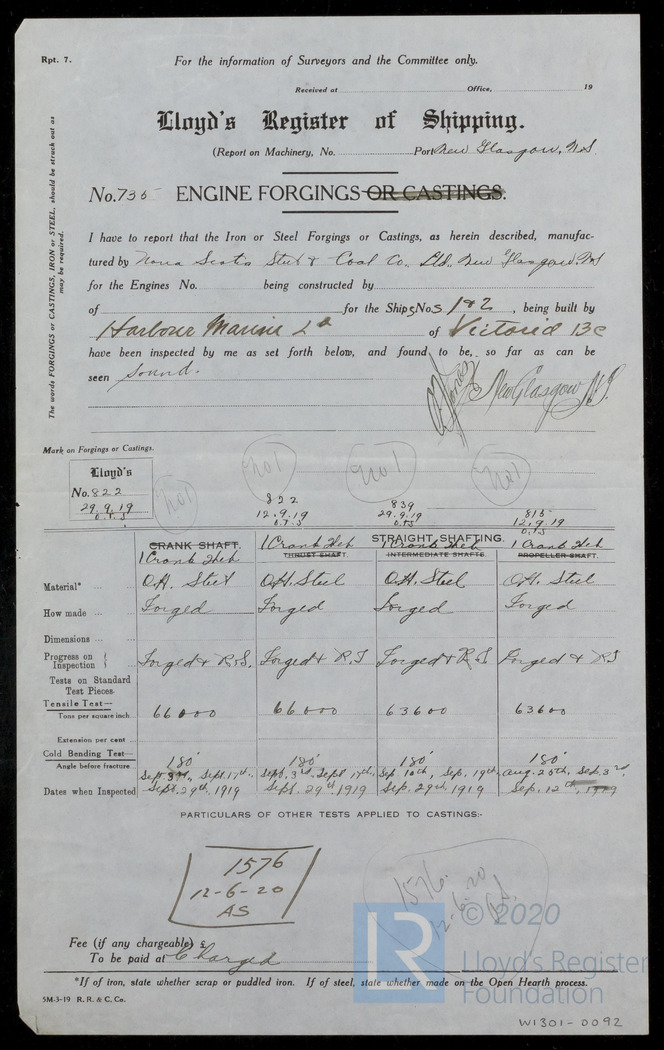 Rpt. 7.
For the information of Surveyors and the Committee only.
Received at Office, 19
Lloyd's Register of Shipping.
(Report on Machinery, No. Port New Glasgow, N.S
No. 735 ENGINE FORGINGS OR CASTINGS.
The words FORGINGS or CASTINGS, IRON or STEEL, should be struck out as
may be required.
I have to report that the Iron or Steel Forgings or Castings, as herein described, manufac-
tured by Nova Scotia Steel & Coal Co., Ltd., New Glasgow. NS
for the Engines No. being constructed by
of for the Ships Nos 1 & 2, being built by
Harbour Marine Ld of Victoria BC
have been inspected by me as set forth below, and found to be, so far as can be
seen sound.
New Glasgow N.S.
Mark on Forgings or Castings.
Lloyd's
No. 822
29.9.19
O.T.S
No 1
No 1
No 1
No 1
822
12.9.19
O.T.S
839
29.9.19
O.T.S
815
12.9.19
O.T.S
STRAIGHT SHAFTING.
CRANK SHAFT. THRUST SHAFT. INTERMEDIATE SHAFTS. PROPELLER SHAFT.
1 Crank Web 1 Crank Web 1 Crank Web 1 Crank Web
Material* O.H. Steel O.H. Steel O.H. Steel O.H. Steel
How made Forged Forged Forged Forged
Dimensions
Progress on Inspection Forged & R.S. Forged & R.S Forged & R.S Forged & RS
Tests on Standard
Test Pieces.
Tensile Test—
Tons per square inch 66000 66000 63600 63600
Extension per cent
Cold Bending Test—
Angle before fracture 180° 180° 180° 180°
Dates when Inspected
Sept. 3rd, Sept. 17th,
Sept. 29th, 1919
Sept. 3rd, Sept 17th,
Sept. 29th, 1919
Sep. 10th, Sep. 19th,
Sep. 29th, 1919
Aug. 25th, Sep. 3rd,
Sep. 12th, 1919
PARTICULARS OF OTHER TESTS APPLIED TO CASTINGS:-
1576
12-6-20
AS
1576.
12-6.20
AS.
Fee (if any chargeable) £
To be paid at Charged
*If of iron, state whether scrap or puddled iron. If of steel, state whether made on the Open Hearth process.
5M-3-19 R. R. & C. Co.
LR
© 2020
Lloyd's Register
Foundation
W1301-0092